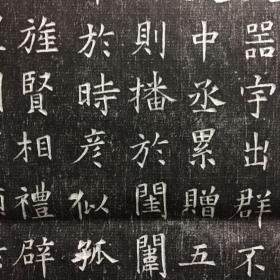 器宇出群不
中丞累贈五
則播於閨闈
於時彦似孤
旌賢相禮辟